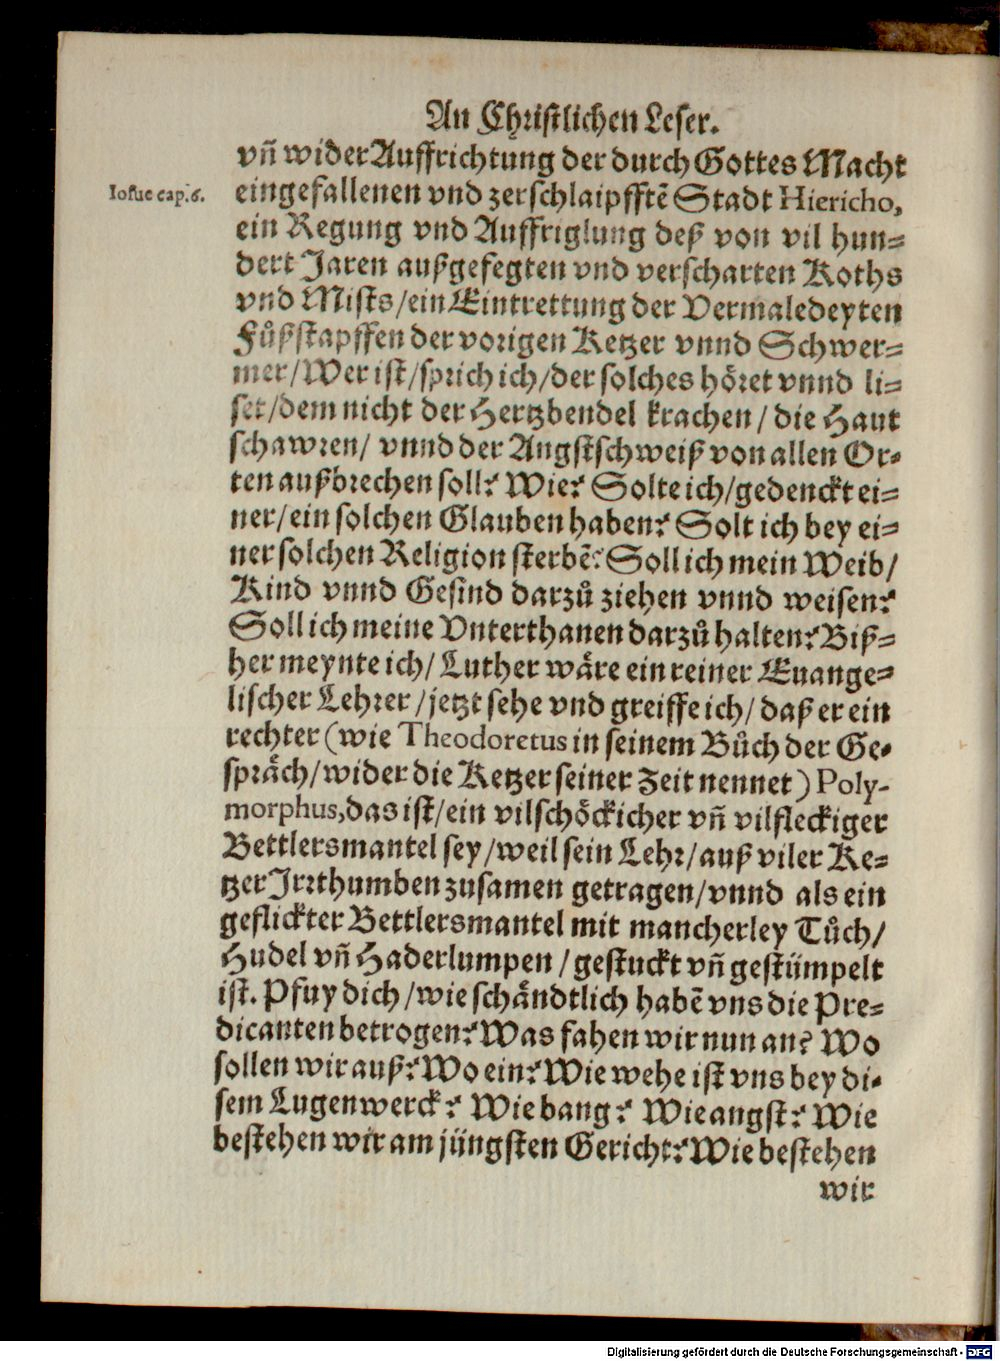 An Christlichen Leser.
vñ wider Auffrichtung der durch Gottes Macht
Iosue cap. 6.
eingefallenen vnd zerschlaipfftẽ Stadt Hiericho,
ein Regung vnd Auffriglung deß von vil hun-
dert Jaren außgefegten vnd verscharten Koths
vnd Mists/ein Eintrettung der Vermaledeyten
Fůßstapffen der vorigen Ketzer vnnd Schwer-
mer/Wer ist/sprich ich/der solches höret vnnd li-
set/dem nicht der Hertzbendel krachen/die Haut
schawren/ vnnd der Angstschweiß von allen Or-
ten außbrechen soll? Wie? Solte ich/gedenckt ei-
ner/ein solchen Glauben haben? Solt ich bey ei-
ner solchen Religion sterbẽ? Soll ich mein Weib/
Kind vnnd Gesind darzů ziehen vnnd weisen?
Soll ich meine Vnterthanen darzů halten? Biß-
her meynte ich/ Luther wäre ein reiner Euange-
lischer Lehrer/jetzt sehe vnd greiffe ich/ daß er ein
rechter (wie Theodoretus in seinem Bůch der Ge-
spräch/wider die Ketzer seiner Zeit nennet) Poly-
morphus, das ist/ein vilschöckicher vñ vilfleckiger
Bettlersmantel sey/weil sein Lehr/auß viler Ke-
tzer Jrrthumben zusamen getragen/vnnd als ein
geflickter Bettlersmantel mit mancherley Tůch/
Hudel vñ Haderlumpen/gestuckt vñ gestümpelt
ist. Pfuy dich/wie schändtlich habẽ vns die Pre-
dicanten betrogen? Was fahen wir nun an? Wo
sollen wir auß? Wo ein? Wie wehe ist vns bey di-
sem Lugenwerck? Wie bang? Wie angst? Wie
bestehen wir am jüngsten Gericht? Wie bestehen
wir
Digitalisierung gefördert durch die Deutsche Forschungsgemeinschaft - DFG